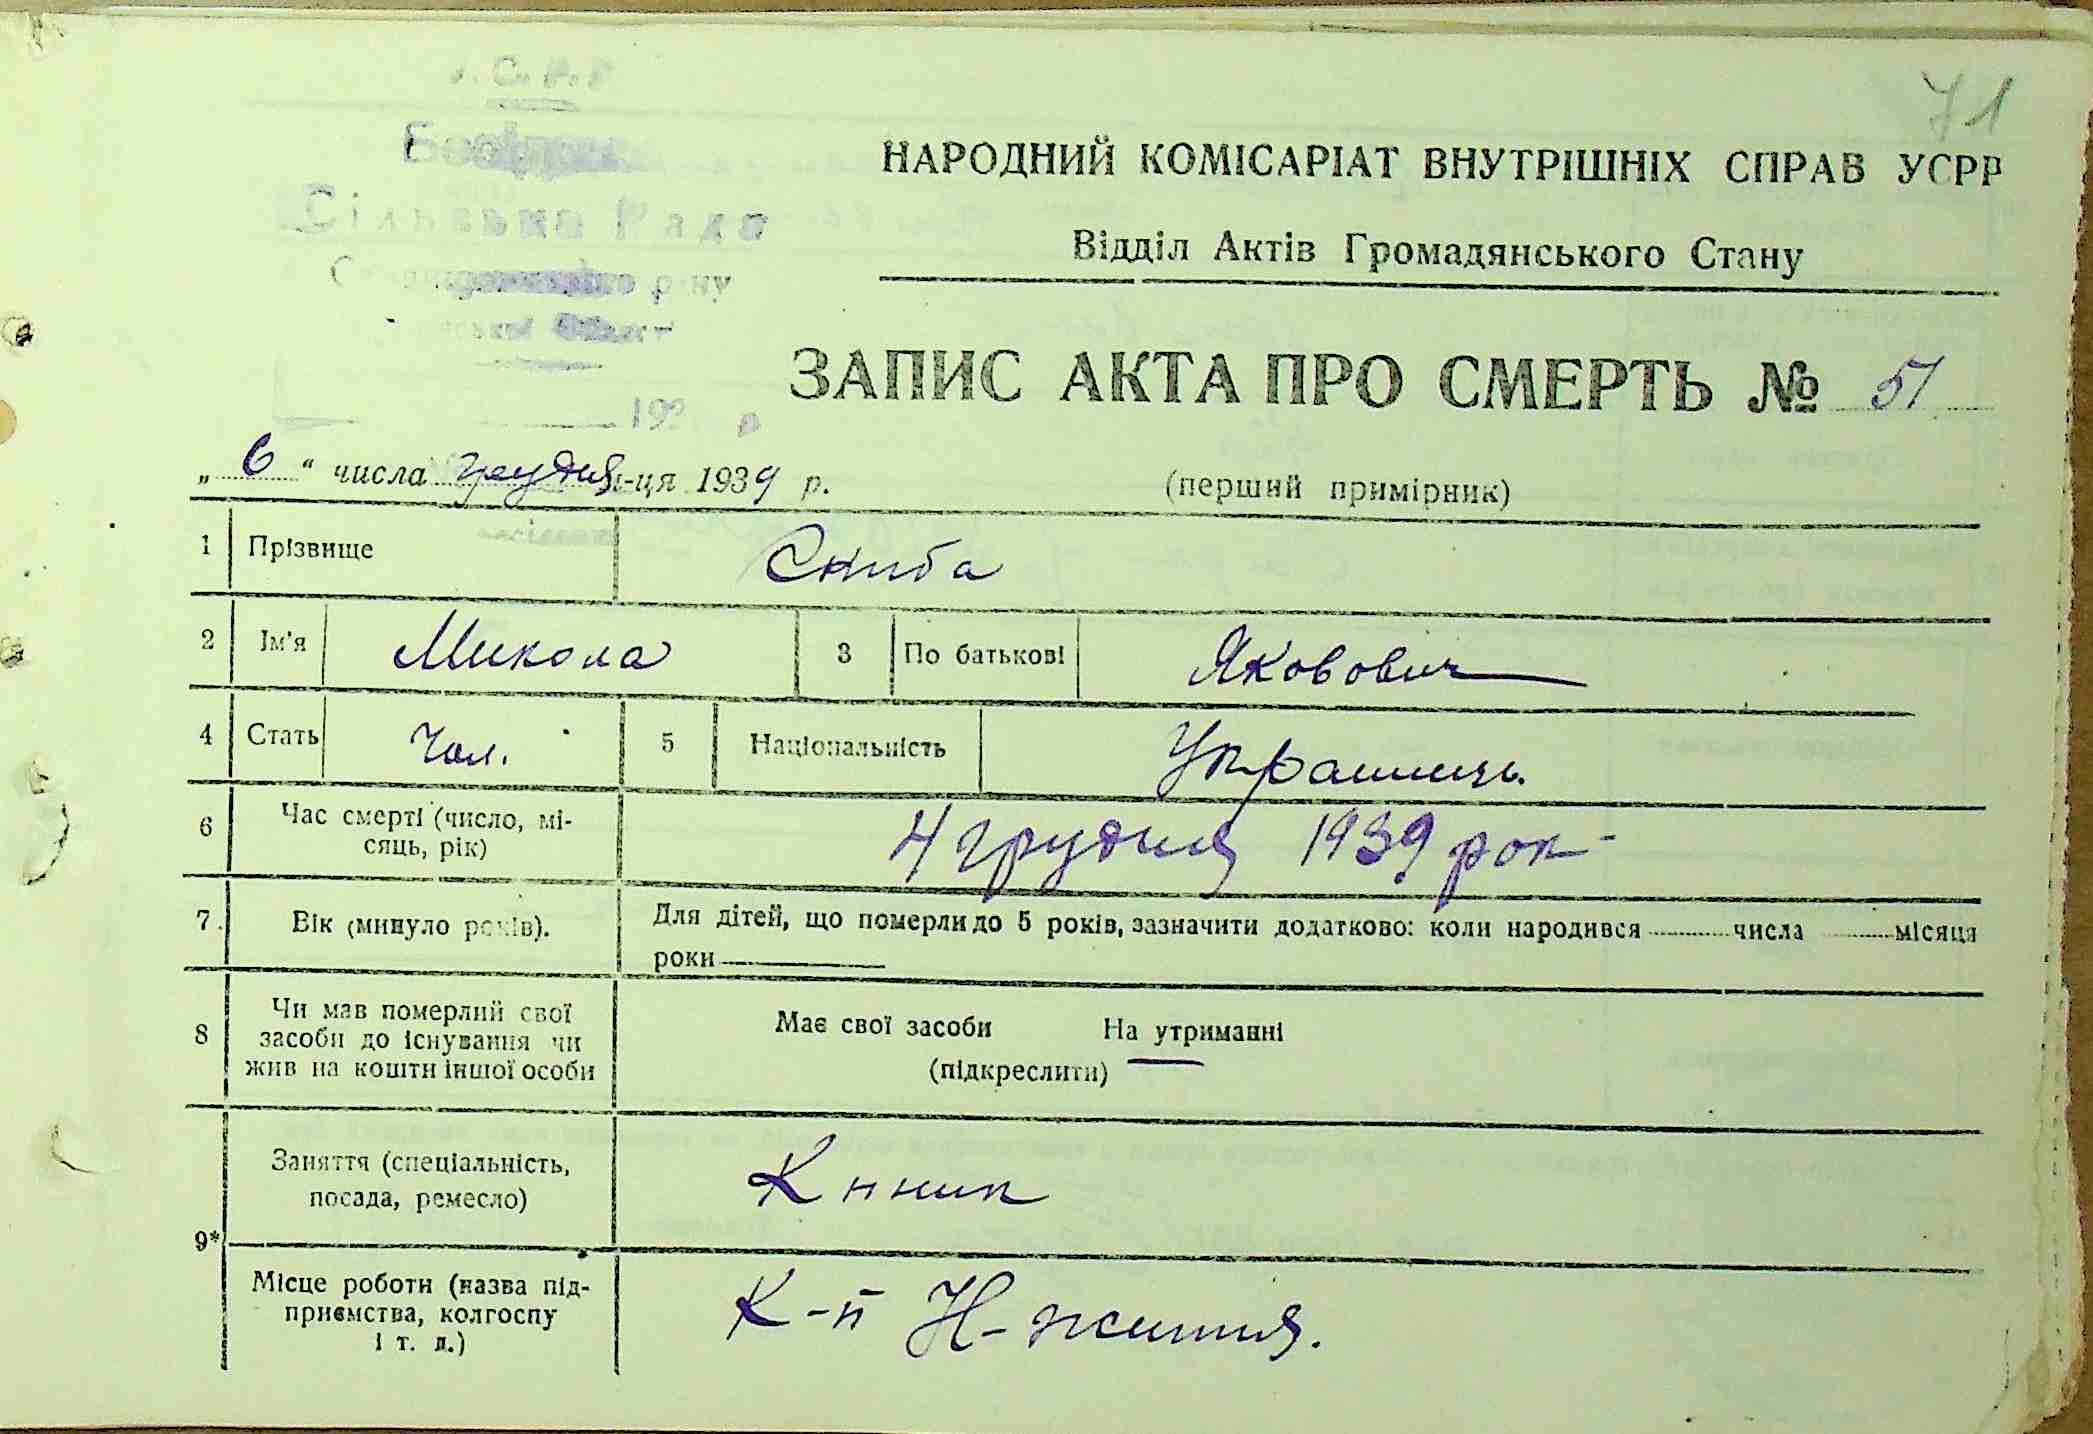 71
НАРОДНИЙ КОМІСАРІАТ ВНУТРІШНІХ СПРАВ УСРР
Сільська Рада
Відділ Актів Громадянського Стану
ЗАПИС АКТА ПРО СМЕРТЬ № 51
193
„ 6 “ числа грудня м-ця 1939 р.
(перший примірник)
1 Прізвище Скиба
2 Ім'я Микола 3 По батькові Якович
4 Стать Чол. 5 Національність Українець.
6 Час смерті (число, мі-
сяць, рік) 4 грудня 1939 рок
7. Вік (минуло років). Для дітей, що померли до 5 років, зазначити додатково: коли народився числа місяця
роки
8 Чи мав померлий свої
засоби до існування чи
жив на кошти іншої особи
Має свої засоби На утриманні
(підкреслити)
9* Заняття (спеціальність,
посада, ремесло) К-ник
Місце роботи (назва під-
приємства, колгоспу
і т. д.) К-п Н-життя.